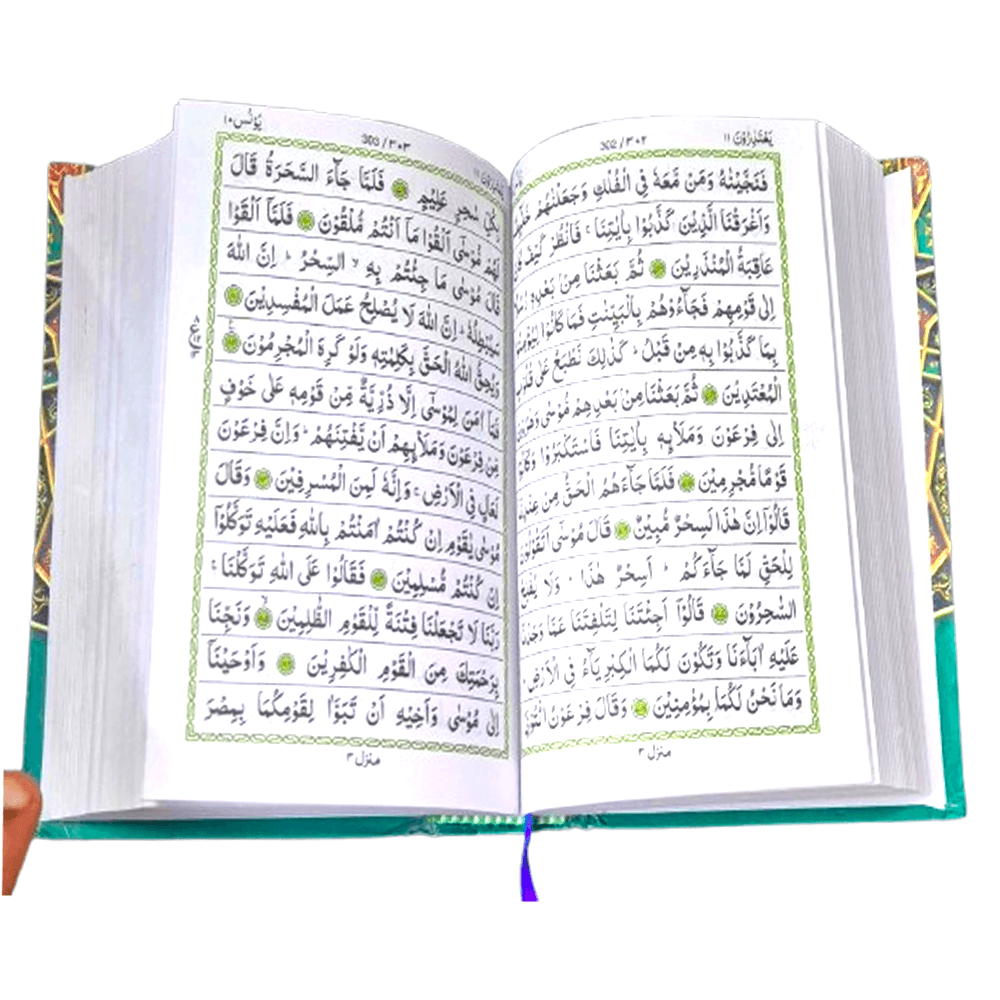 یَعْتَذِرُوْنَ ۱۱ 302/۳۰۲
فَنَجَّيْنٰهُ وَمَنْ مَّعَهٗ فِي الْفُلْكِ وَجَعَلْنٰهُمْ
وَاَغْرَقْنَا الَّذِيْنَ كَذَّبُوْا بِاٰيٰتِنَا ۚ فَانْظُرْ كَيْفَ
عَاقِبَةُ الْمُنْذَرِيْنَ ثُمَّ بَعَثْنَا مِنْۢ بَعْدِهٖ
اِلٰى قَوْمِهِمْ فَجَآءُوْهُمْ بِالْبَيِّنٰتِ فَمَا كَانُوْا
بِمَا كَذَّبُوْا بِهٖ مِنْ قَبْلُ ؕ كَذٰلِكَ نَطْبَعُ عَلٰى
الْمُعْتَدِيْنَ ثُمَّ بَعَثْنَا مِنْۢ بَعْدِهِمْ مُّوْسٰى
اِلٰى فِرْعَوْنَ وَمَلَا۟ئِهٖ بِاٰيٰتِنَا فَاسْتَكْبَرُوْا
قَوْمًا مُّجْرِمِيْنَ فَلَمَّا جَآءَهُمُ الْحَقُّ مِنْ
قَالُوْٓا اِنَّ هٰذَا لَسِحْرٌ مُّبِيْنٌ قَالَ مُوْسٰٓى اَتَقُوْلُوْنَ
لِلْحَقِّ لَمَّا جَآءَكُمْ ؕ اَسِحْرٌ هٰذَا ؕ وَلَا
السّٰحِرُوْنَ قَالُوْٓا اَجِئْتَنَا لِتَلْفِتَنَا عَمَّا
عَلَيْهِ اٰبَآءَنَا وَتَكُوْنَ لَكُمَا الْكِبْرِيَآءُ فِي الْاَرْضِ
وَمَا نَحْنُ لَكُمَا بِمُؤْمِنِيْنَ وَقَالَ فِرْعَوْنُ
منزل ۳
303/۳۰۳ يُوْنُس ۱۰
بِكُلِّ سٰحِرٍ عَلِيْمٍ فَلَمَّا جَآءَ السَّحَرَةُ قَالَ
لَهُمْ مُّوْسٰٓى اَلْقُوْا مَآ اَنْتُمْ مُّلْقُوْنَ فَلَمَّآ اَلْقَوْا
قَالَ مُوْسٰى مَا جِئْتُمْ بِهِ ۙ السِّحْرُ ؕ اِنَّ اللّٰهَ
سَيُبْطِلُهٗ ؕ اِنَّ اللّٰهَ لَا يُصْلِحُ عَمَلَ الْمُفْسِدِيْنَ
وَيُحِقُّ اللّٰهُ الْحَقَّ بِكَلِمٰتِهٖ وَلَوْ كَرِهَ الْمُجْرِمُوْنَ
فَمَآ اٰمَنَ لِمُوْسٰٓى اِلَّا ذُرِّيَّةٌ مِّنْ قَوْمِهٖ عَلٰى خَوْفٍ
مِّنْ فِرْعَوْنَ وَمَلَا۟ئِهِمْ اَنْ يَّفْتِنَهُمْ ؕ وَاِنَّ فِرْعَوْنَ
لَعَالٍ فِي الْاَرْضِ ۚ وَاِنَّهٗ لَمِنَ الْمُسْرِفِيْنَ وَقَالَ
مُوْسٰى يٰقَوْمِ اِنْ كُنْتُمْ اٰمَنْتُمْ بِاللّٰهِ فَعَلَيْهِ تَوَكَّلُوْٓا
اِنْ كُنْتُمْ مُّسْلِمِيْنَ فَقَالُوْا عَلَى اللّٰهِ تَوَكَّلْنَا ۚ
رَبَّنَا لَا تَجْعَلْنَا فِتْنَةً لِّلْقَوْمِ الظّٰلِمِيْنَ وَنَجِّنَا
بِرَحْمَتِكَ مِنَ الْقَوْمِ الْكٰفِرِيْنَ وَاَوْحَيْنَآ
اِلٰى مُوْسٰى وَاَخِيْهِ اَنْ تَبَوَّاٰ لِقَوْمِكُمَا بِمِصْرَ
منزل ۳